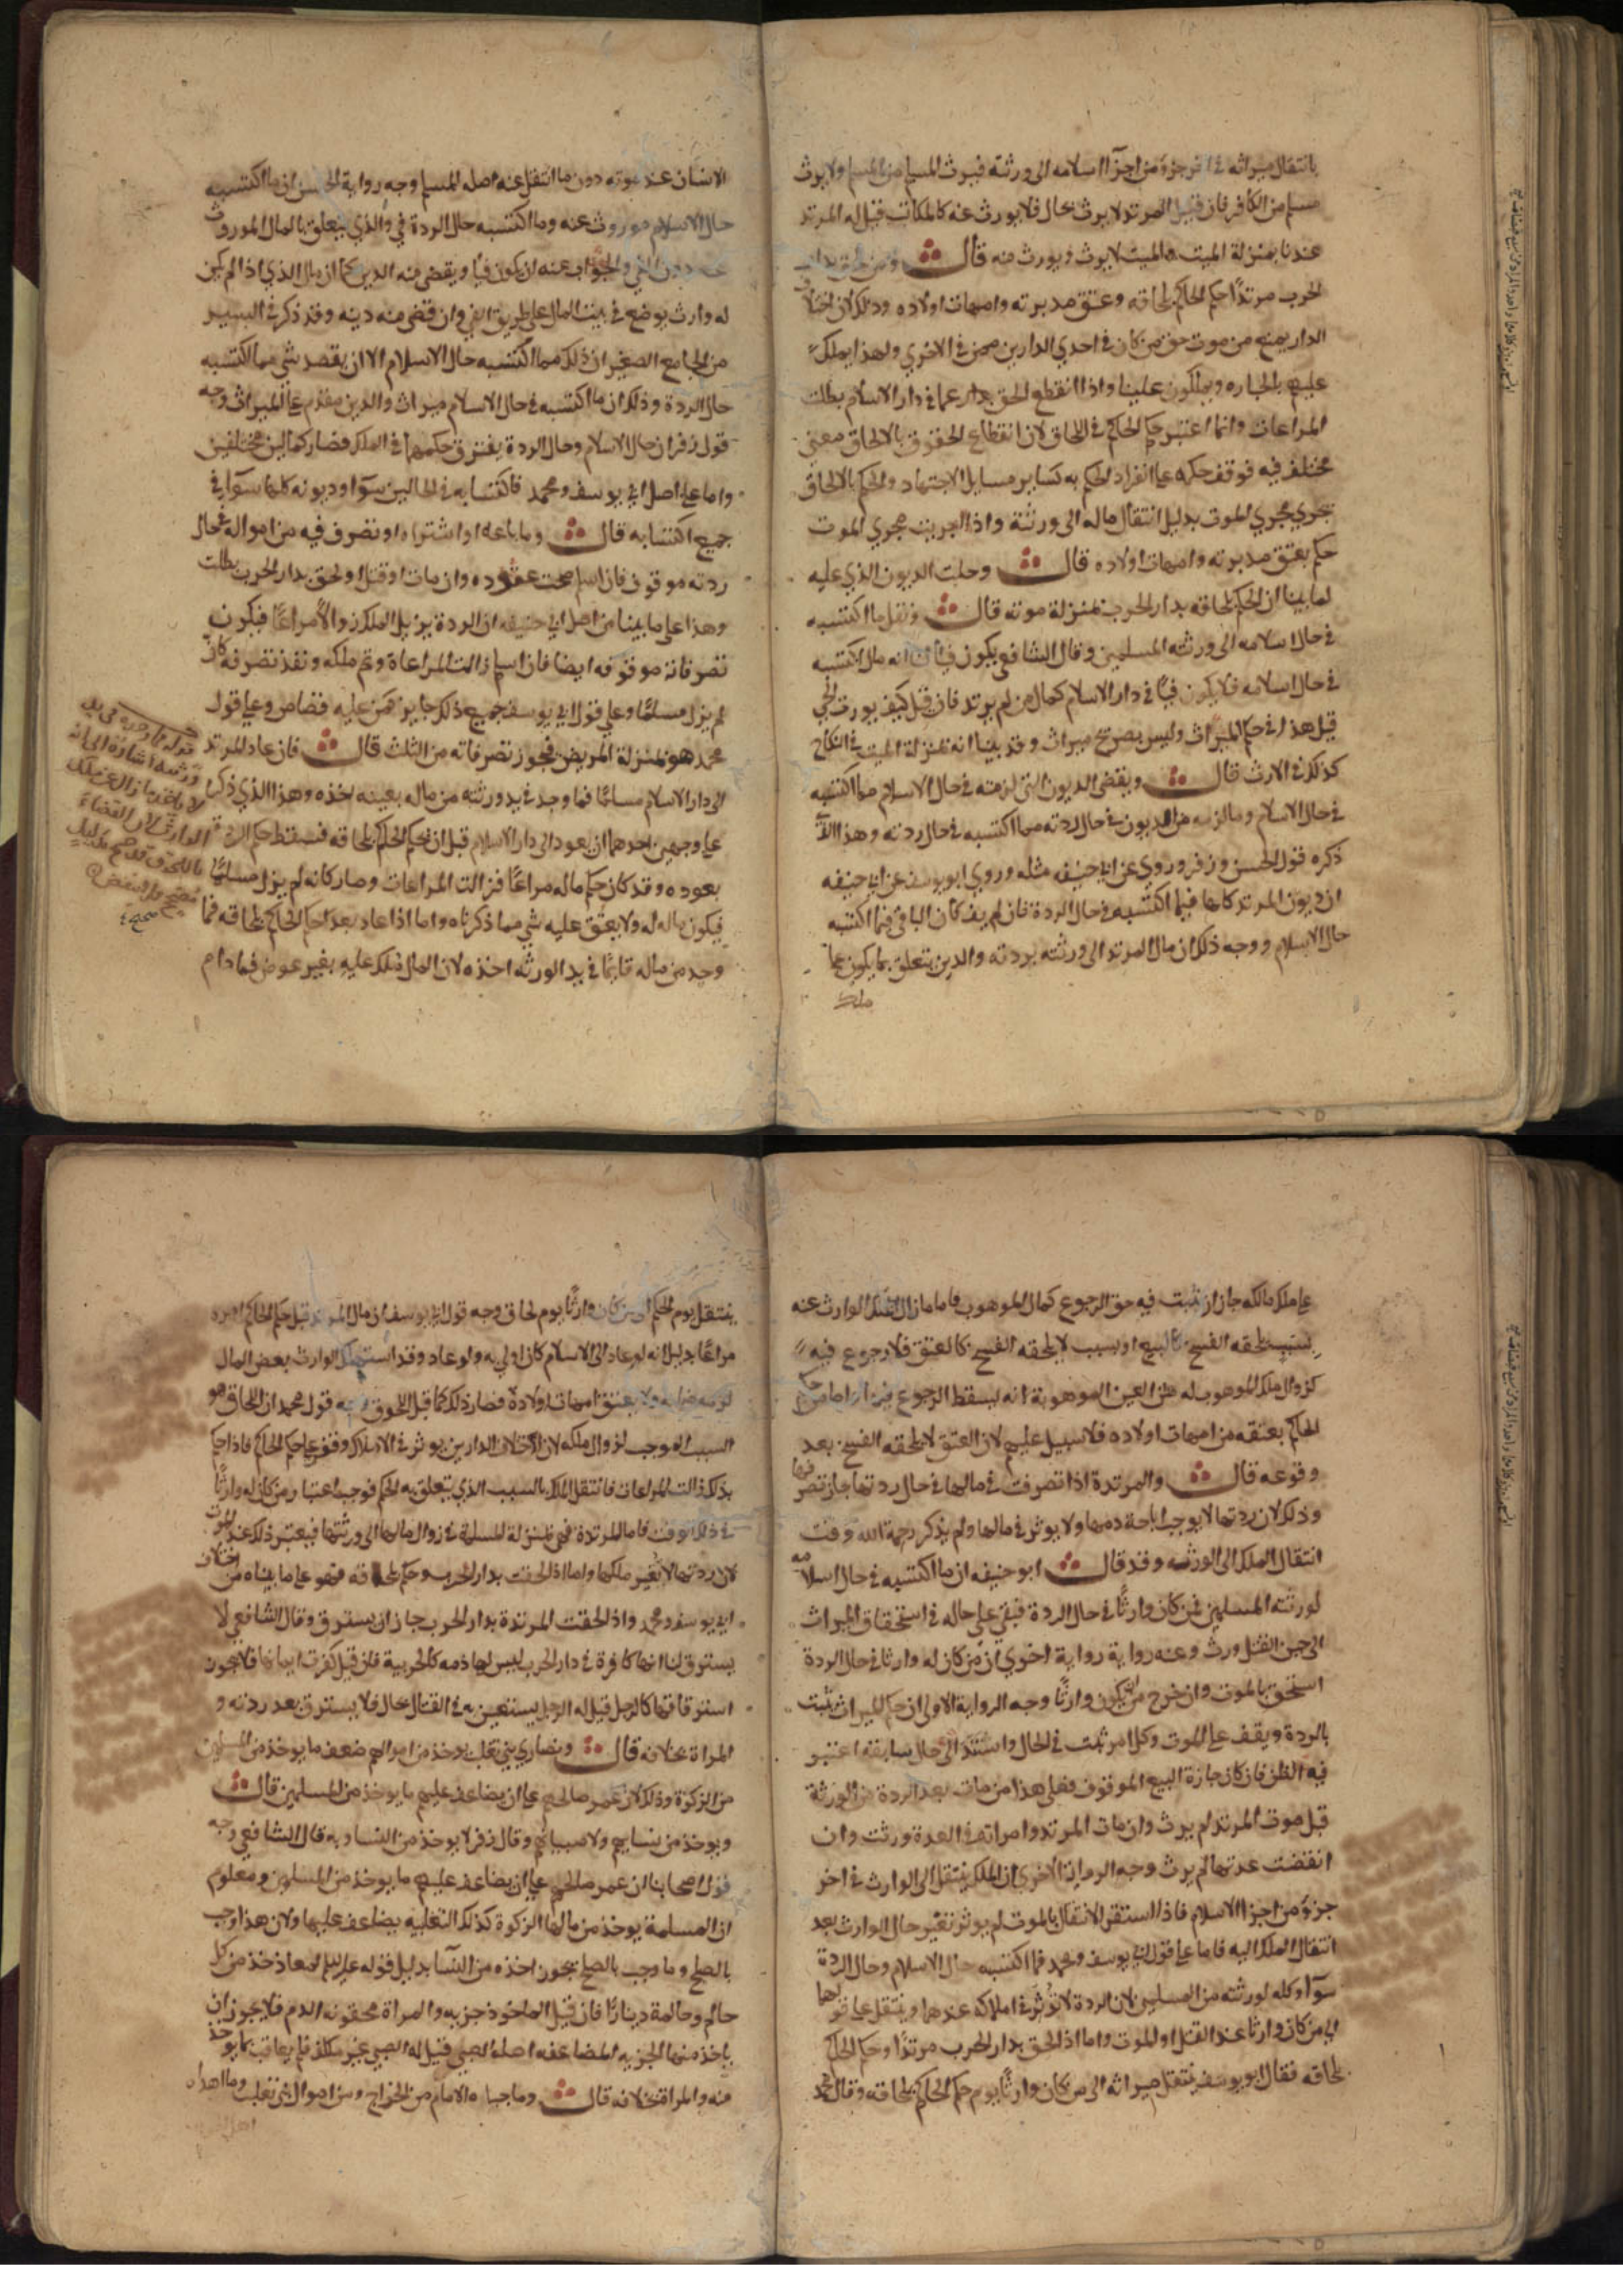 بانتقال ميراثه في اخر جزؤ من اجزآ اسلامه الى ورثته فيرث المسلم من المسلم ولا يرث
مسلم من الكافر فان قيل المرتد لا يرث بحال فلا يورث عنه كالمكاتب قيل له المرتد
عندنا بمنزلة الميت والميت لا يرث ويورث منه قال ومن لحق بدار
الحرب مرتدًا وحكم الحاكم بلحاقه وعتق مدبرته وامهات اولاده وذلك لان اختلاف
الدار يمنع من موت حق من كان في احدي الدارين ممن في الاخري ولهذا يملك
عليهم بالحيازه ويملكون علينا واذا انقطع الحق بدار عما في دار الاسلام بطلت
المراعات وانما اعتبر حكم الحاكم في اللحاق لان انقطاع الحقوق بالالحاق معنى
مختلف فيه فوقف حكمه على انفراد الحكم به كساير مسايل الاجتهاد والحكم بالالحاق
يجري مجري الموت بدليل انتقال ماله الى ورثته واذا اجريت مجري الموت
حكم بعتق مدبرته وامهات اولاده قال وحلت الديون الذي عليه
لما بينا ان الحكم بلحاقه بدار الحرب بمنزلة موته قال ونقل ما اكتسبه
في حال اسلامه الى ورثته المسلمين وقال الشافعي يكون فيأ لنا انه مال اكتسبه
في حال اسلامه فلا يكون فيًا في دار الاسلام كمال من لم يرتد فان قيل كيف يورث الحي
قيل هذا في حكم الميراث وليس بصريح ميراث وقد بينا انه بمنزلة الميت في النكاح
كذلك في الارث قال ويقضي الديون التي لزمته في حال الاسلام مما اكتسبه
في حال الاسلام وما لزمه من الديون في حال ردته مما اكتسبه في حال ردته وهذا الذي
ذكره قول الحسن وزفر وروي عن ابي حنيفه مثله وروي ابو يوسف عن ابي حنيفه
ان ديون المرتد كلها فيما اكتسبه في حال الردة فان لم يف كان الباقي فيما اكتسبه
حال الاسلام ووجه ذلك ان مال المرتد الى ورثته بردته والدين يتعلق بما يكون على
ملك
الانسان عند موته دون ما انتقل عنه اصله المسلم وجه رواية الحسن ان ما اكتسبه
حال الاسلام موروث عنه وما اكتسبه حال الردة في والذي يتعلق بالمال الموروث
عنه دون الفي والجواب عنه ان يكون فيًا ويقضي منه الدين كما ان مال الذي اذا لم يكن
له وارث يوضع في بيت المال على طريق الفي وان قضي منه دينه وقد ذكر في السير
من الجامع الصغير ان ذلك مما اكتسبه حال الاسلام الا ان يقصد شي مما اكتسبه
حال الردة وذلك ان ما اكتسبه في حال الاسلام ميراث والدين مقدم على الميراث وجه
قول زفر ان حال الاسلام وحال الردة يفترق حكمهما في الملك فصار كمالين مختلفين
واما على اصل ابي يوسف ومحمد فاكتسابه في الحالين سوآ وديونه كلها سوآ في
جميع اكتسابه قال وما باعه او اشتراه او تصرف فيه من امواله في حال
ردته موقوف فان اسلم صحت عقوده وان مات او قتل او لحق بدار الحرب بطلت
وهذا على ما بينا من اصل ابي حنيفه ان الردة يزيل الملك زوالًا مراعًا فيكون
تصرفاته موقوفه ايضا فان اسلم زالت المراعاة وتم ملكه ونفذ تصرفه كان
لم يزل مسلمًا وعلي قول ابي يوسف جميع ذلك جايز كمن عليه قصاص وعلي قول
محمد هو بمنزلة المريض فيجوز تصرفاته من الثلث قال فان عاد المرتد
الى دار الاسلام مسلمًا فما وجد في يد ورثته من ماله بعينه اخذه وهذا الذي ذكر
على وجهين احدهما ان يعود الى دار الاسلام قبل ان يحكم الحاكم بلحاقه فسقط حكم الردة
بعوده وقد كان حكم ماله مراعًا فزالت المراعات وصار كانه لم يزل مسلمًا
فيكون ماله له ولا يعتق عليه شي مما ذكرناه واما اذا عاد بعد احكم الحاكم بلحاقه فما
وجد من ماله قايمًا في يد الورثه اخذه لان المال ملك عليه بغير عوض فما دام
قوله فما وجده في يد
ورثته اشارة الى انه
لا ياخذ ما زال عن ملك
الوارث لان القضاء
باللحوق قد صح بدليل
صحيح ولا ينقض
على ملك مالكه جاز ان يثبت فيه حق الرجوع كمال الموهوب فاما ما زال ملك الوارث عنه
بسبب يلحقه الفسخ كالبيع او بسبب لا يلحقه الفسخ كالعتق فلا رجوع فيه
كزوال ملك الموهوب له عن العين الموهوبة انه يسقط الرجوع فيها واما من حكم
الحاكم بعتقه من امهات اولاده فلا سبيل عليهم لان العتق لا يلحقه الفسخ بعد
وقوعه قال والمرتدة اذا تصرفت في مالها في حال ردتها جاز تصرفها
وذلك لان ردتها لا يوجب اباحة دمها ولا يوثر في مالها ولم يذكر رحمة الله وقت
انتقال الملك الى الورثه وقد قال ابو حنيفه ان ما اكتسبه في حال اسلامه
لورثته المسلمين فمن كان وارثًا في حال الردة فبقي على حاله في استحقاق الميراث
الى حين القتل ورث وعنه رواية رواية اخري ان من كان له وارثا في حال الردة
استحق بالموت وان خرج من ان يكون وارثًا وجه الرواية الاولي ان حكم الميراث يثبت
بالردة ويقف على الموت وكل امر ثبت في الحال واستند الى حال سابقه اعتبر
فيه الطرفان كاجازة البيع الموقوف فعلي هذا من مات بعد الردة من الورثة
قبل موت المرتد لم يرث وان مات المرتد وامراته في العدة ورثت وان
انقضت عدتها لم يرث وجه الرواية الاخري ان الملك ينتقل الى الوارث في اخر
جزؤ من اجزا الاسلام فاذا استقر الانتقال بالموت لم يوثر تغير حال الوارث بعد
انتقال الملك اليه فاما على قول ابي يوسف ومحمد فما اكتسبه حال الاسلام وحال الردة
سوآ وكله لورثته من المسلمين لان الردة لا توثر في املاكه عندهما وينتقل على قولهما
الى من كان وارثا عند القتل او الموت واما اذا لحق بدار الحرب مرتدًا وحكم الحاكم
بلحاقه فقال ابو يوسف ينتقل ميراثه الى من كان وارثًا يوم حكم الحاكم بلحاقه وقال محمد
ينتقل يوم الحكم الى من كان وارثًا يوم لحاق وجه قول ابي يوسف ان مال المرتد قبل حكم الحاكم امره
مراعًا بدليل انه لو عاد الى الاسلام كان اولي به ولو عاد وقد استهلك الوارث بعض المال
لزمه ضمانه ولا يعتق امهات اولاده فصار ذلك كما قبل اللحوق وجه قول محمد ان اللحاق هو
السبب الموجب لزوال ملكه لان اختلاف الدارين يوثر في الاملاك ووقف على حكم الحاكم فاذا حكم
بذلك زالت المراعات فانتقل الملك بالسبب الذي يتعلق به الحكم فوجب اعتبار من كان له وارثًا
في ذلك الوقت فاما المرتدة فهي بمنزلة المسلمة في زوال مالها الى ورثتها فيعتبر ذلك عند الموت
لان ردتها لا تغير ملكها واما اذا لحقت بدار الحرب وحكم بلحاقه فهو على ما بيناه من اختلاف
ابي يوسف ومحمد واذا لحقت المرتدة بدار الحرب جاز ان يسترق وقال الشافعي لا
يسترق لنا انها كافرة في دار الحرب ليس لها ذمه كالحربية فان قيل كفرت ايمانها فلا يجوز
استرقاقها كالرجل قيل له الرجل يستعين به في القتال بحال فلا يسترق بعد ردته و
المراة بخلافه قال ونصاري بني تغلب يوخذ من اموالهم ضعف ما يوخذ من المسلمين
من الزكوة وذلك لان عمر صالحهم على ان يضاعف عليهم ما يوخذ من المسلمين قال
ويوخذ من نسايهم ولا صبيانهم وقال زفر لا يوخذ من النسا وبه قال الشافعي وجه
قول اصحابنا ان عمر صالحهم على ان يضاعف عليهم ما يوخذ من المسلمين ومعلوم
ان المسلمة يوخذ من مالها الزكوة كذلك التغلبيه يضاعف عليها ولان هذا وجب
بالصلح وما وجب بالصلح يجوز اخذه من النسآ بدليل قوله عليه السلام لمعاذ خذ من كل
حالم وحالمة دينارًا فان قيل الماخوذ جزيه والمراة محقونه الدم فلا يجوز ان
ياخذ منها الجزيه المضاعفه اصله الصبي قيل له الصبي غير مكلف فلم يعاقب بما يوخذ
منه والمراة بخلافه قال وما جباه الامام من الخراج ومن اموال بني تغلب وما اهداه
اهل الحرب